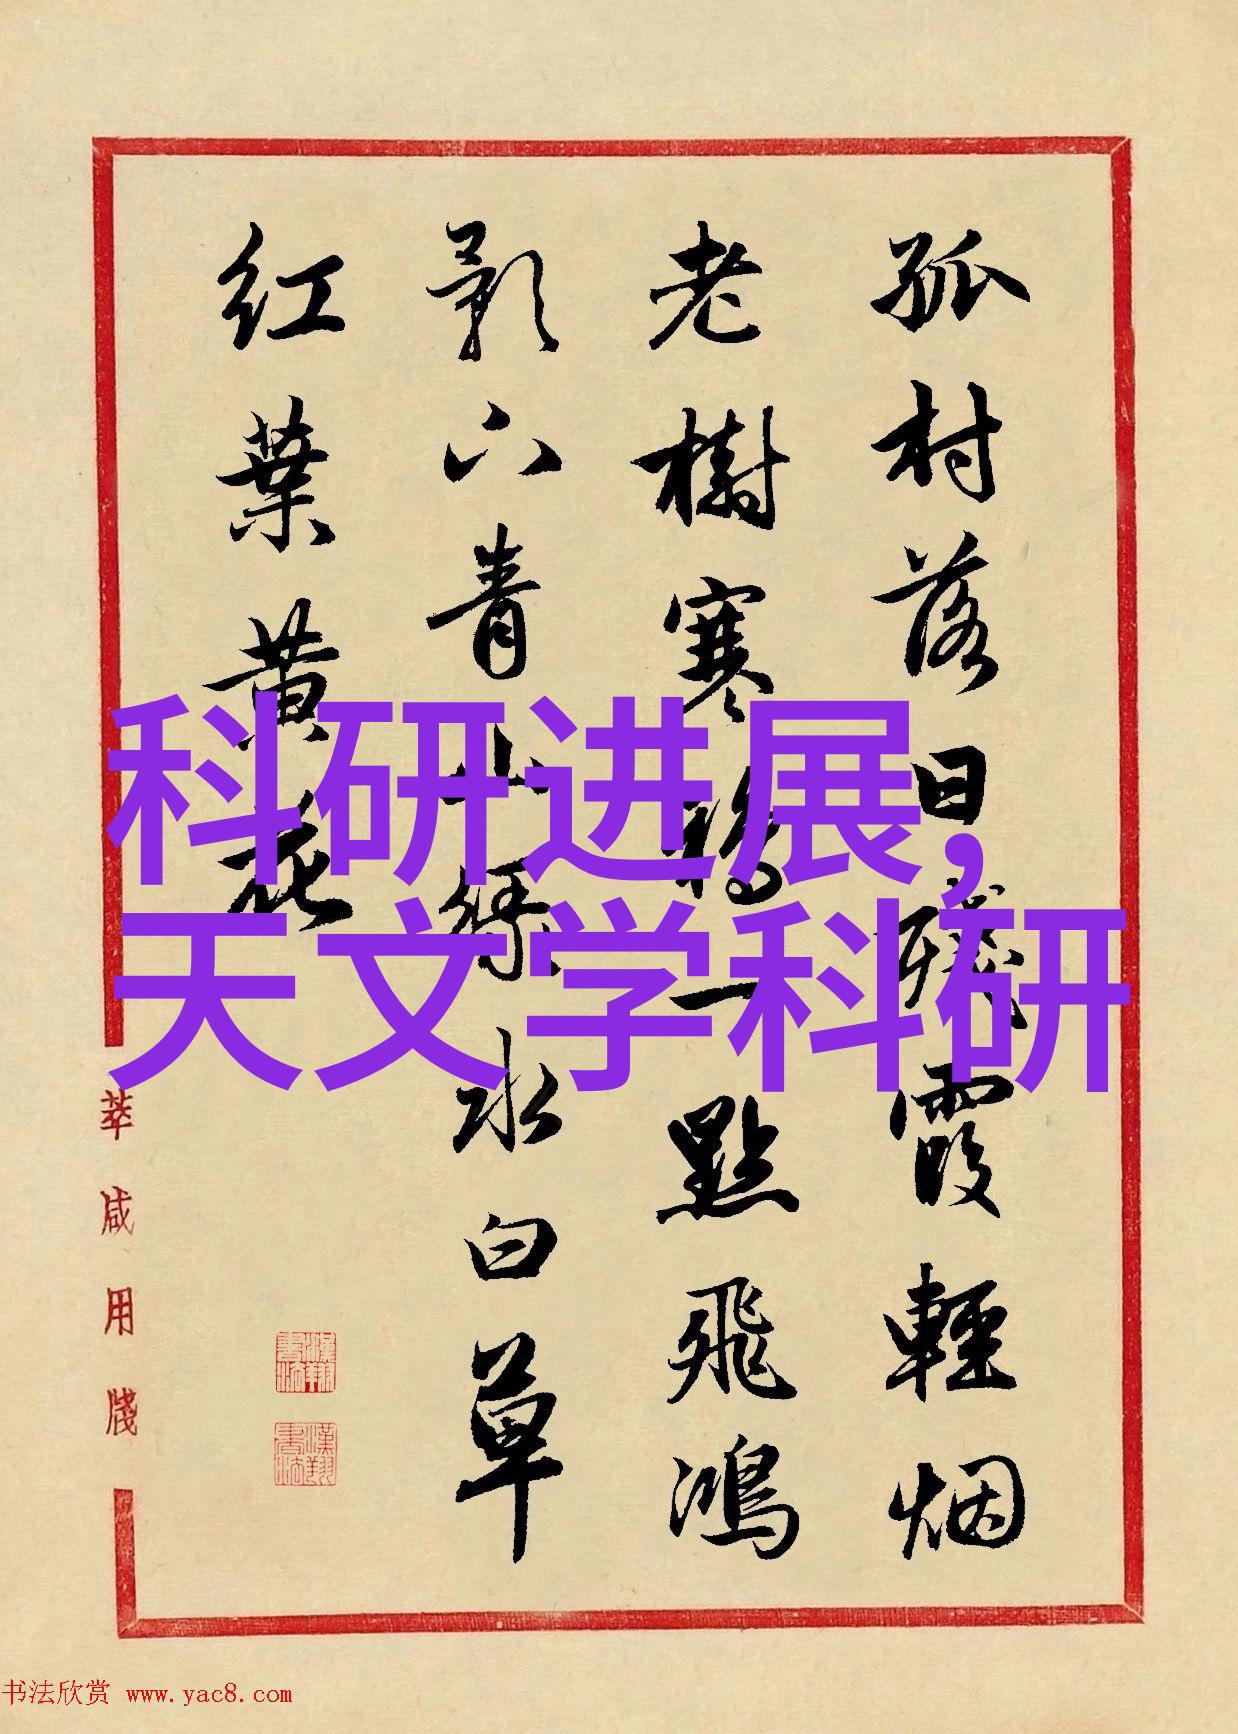 孤村落日殘霞輕烟
老樹寒鴉一點飛鴻
影下青山綠水白草
紅葉黃花
科研进展,
天文学科研
萃咸用牋
書法欣赏 www.yac8.com